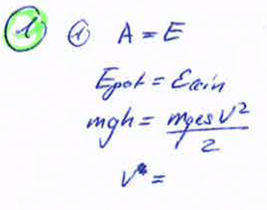 1 ① A = E
Epot = Ekin
mgh = mges v²/2
v =